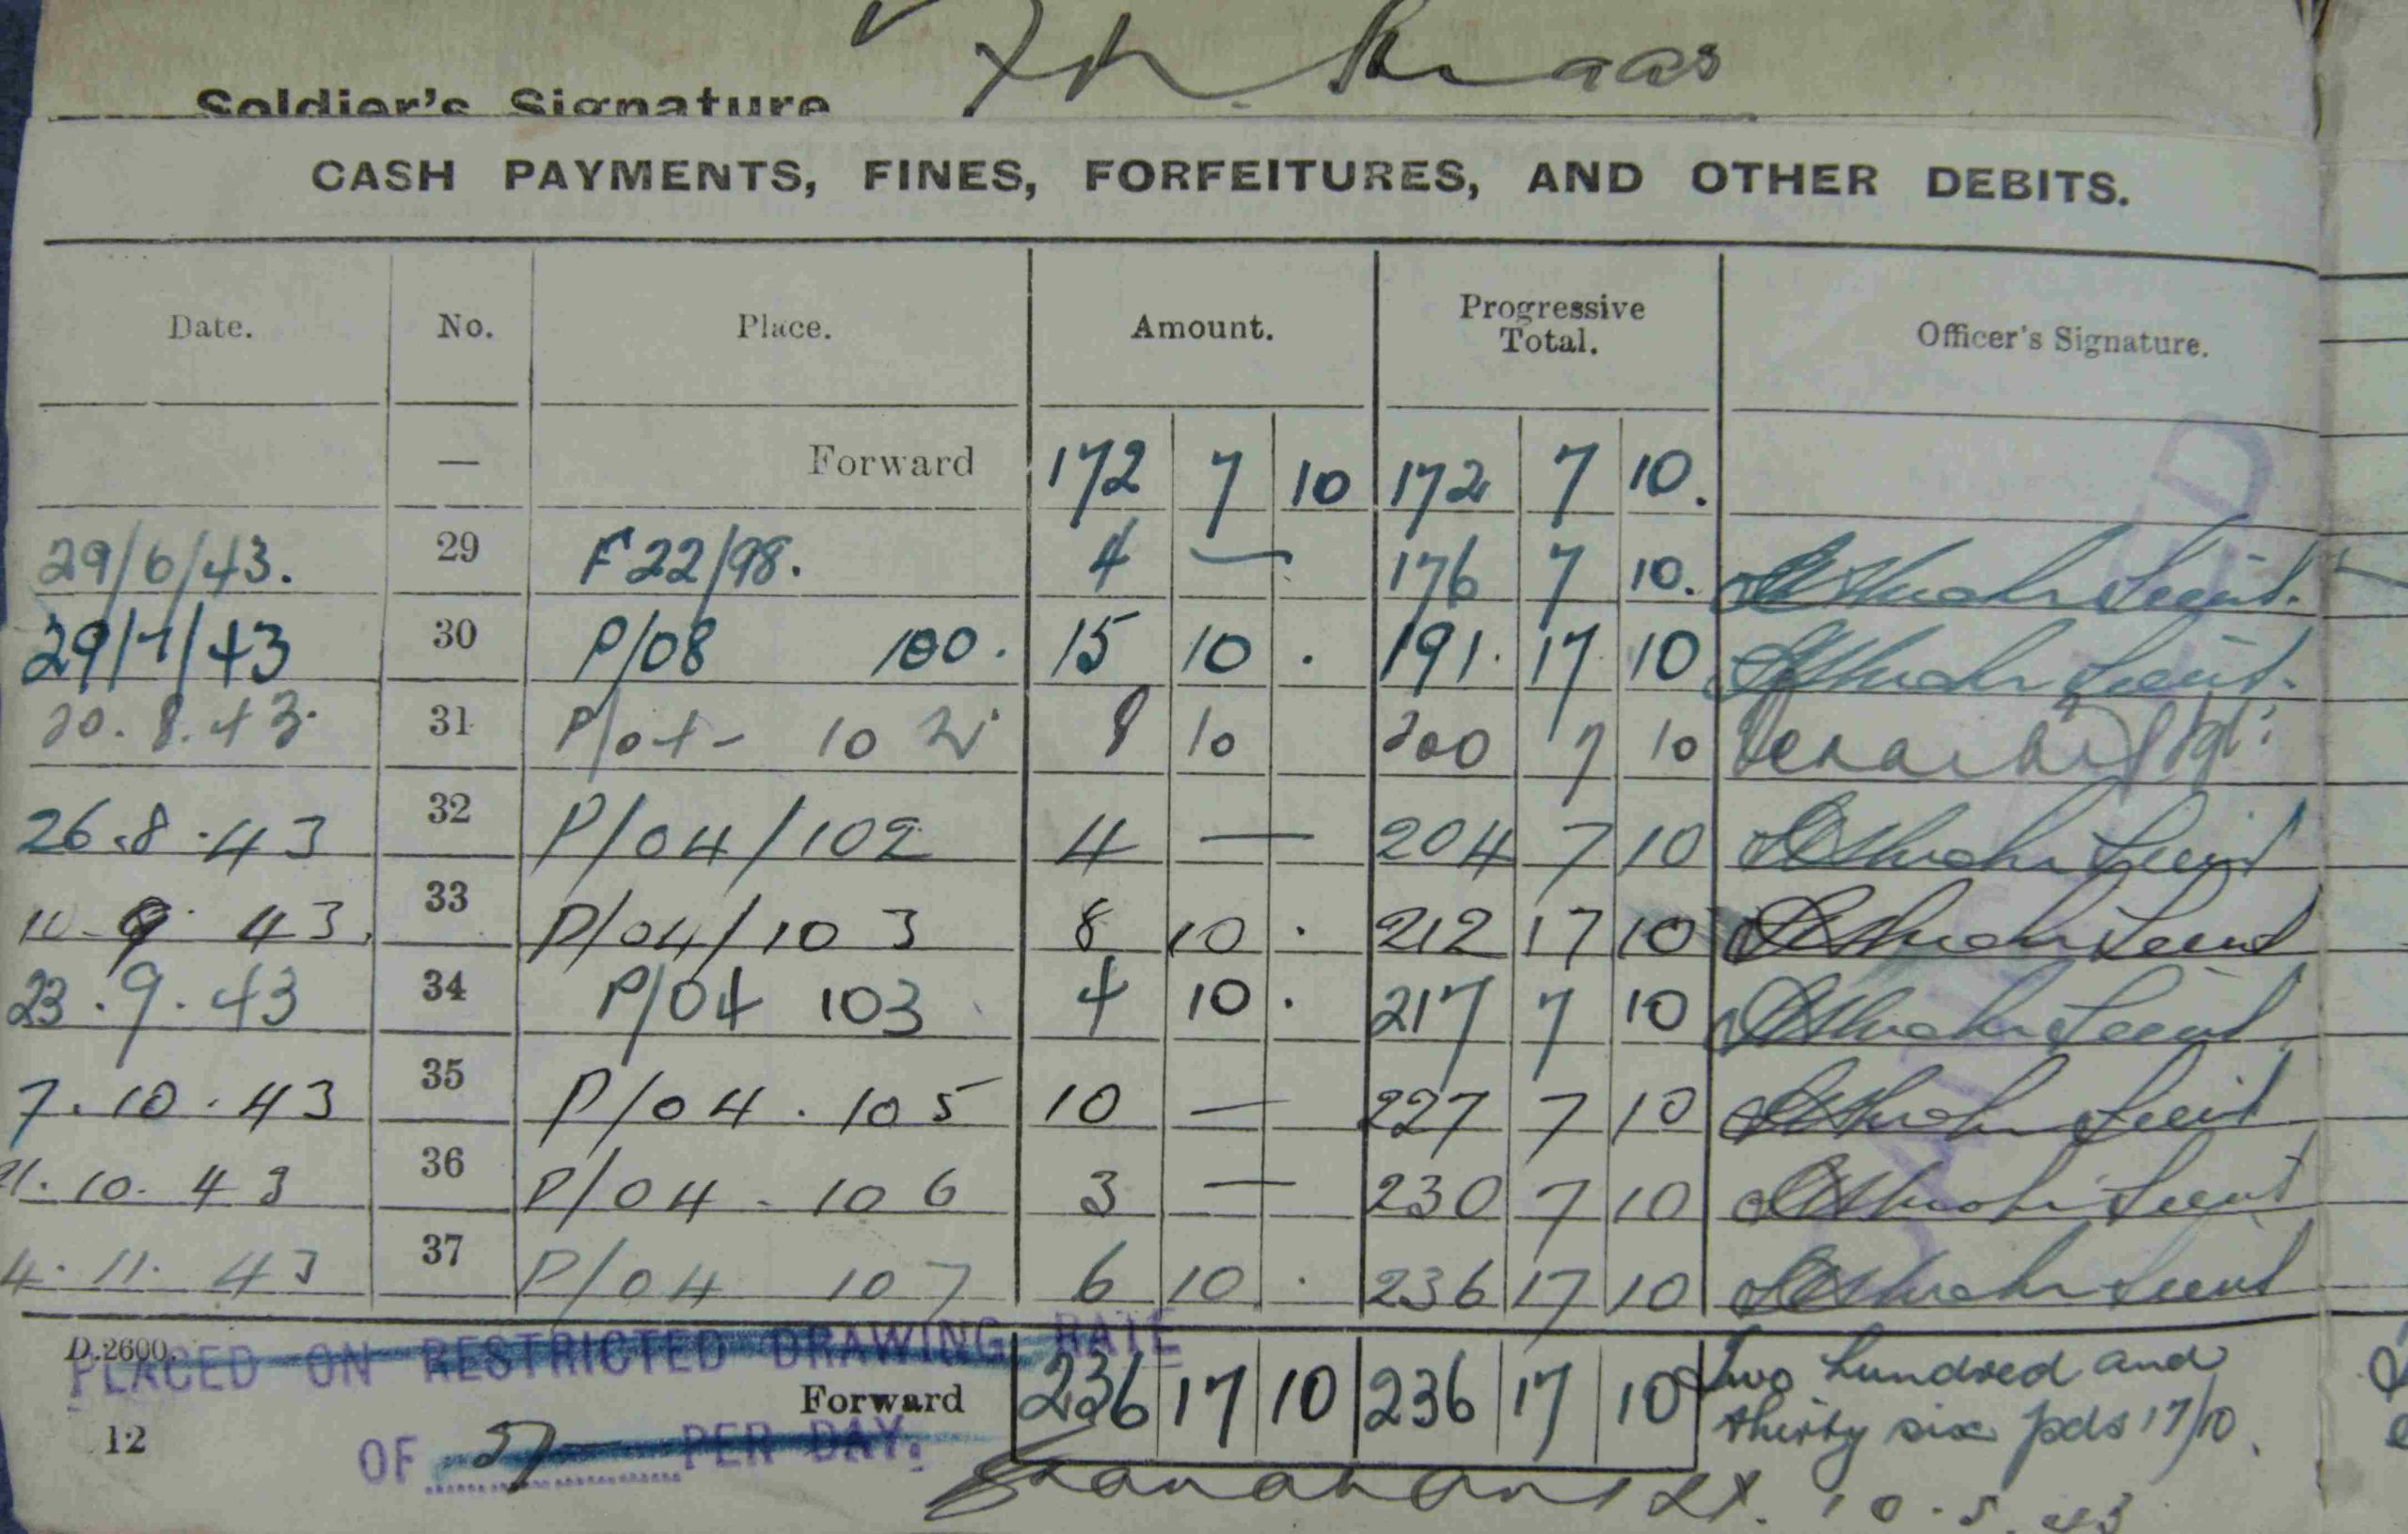 Soldier's Signature
CASH PAYMENTS, FINES, FORFEITURES, AND OTHER DEBITS.
Date. No. Place. Amount. Progressive Total. Officer's Signature.
— Forward 172 7 10 172 7 10.
29/6/43. 29 F22/98. 4 — 176 7 10. Lieut.
29/7/43 30 P/08 100. 15 10 . 191. 17 10 Lieut.
20.8.43. 31 P/04- 102 8 10 200 7 10
26.8.43 32 P/04/102 4 — 204 7 10 Lieut
10.9.43. 33 P/04/103 8 10 . 212 17 10 Lieut
23.9.43 34 P/04 103 4 10 . 217 7 10 Lieut
7.10.43 35 P/04.105 10 — 227 7 10 Lieut
21.10.43 36 P/04-106 3 — 230 7 10 Lieut
4.11.43 37 P/04 107 6 10 . 236 17 10 Lieut
D.2600.
PLACED ON RESTRICTED DRAWING RATE
Forward 236 17 10 236 17 10 Two hundred and
thirty six pds 17/10.
12
OF 5/- PER DAY.
Lt. 10.5.43